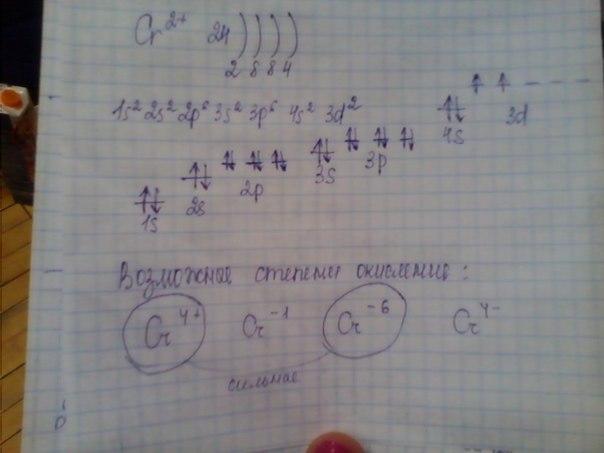 Cr²⁺ 24 ) ) ) )
2 8 8 4
1s² 2s² 2p⁶ 3s² 3p⁶ 4s² 3d²
4s 3d
3s 3p
2s 2p
1s
Возможные степени окисление:
Cr⁴⁺ Cr⁻¹ Cr⁻⁶ Cr⁴⁻
сильные